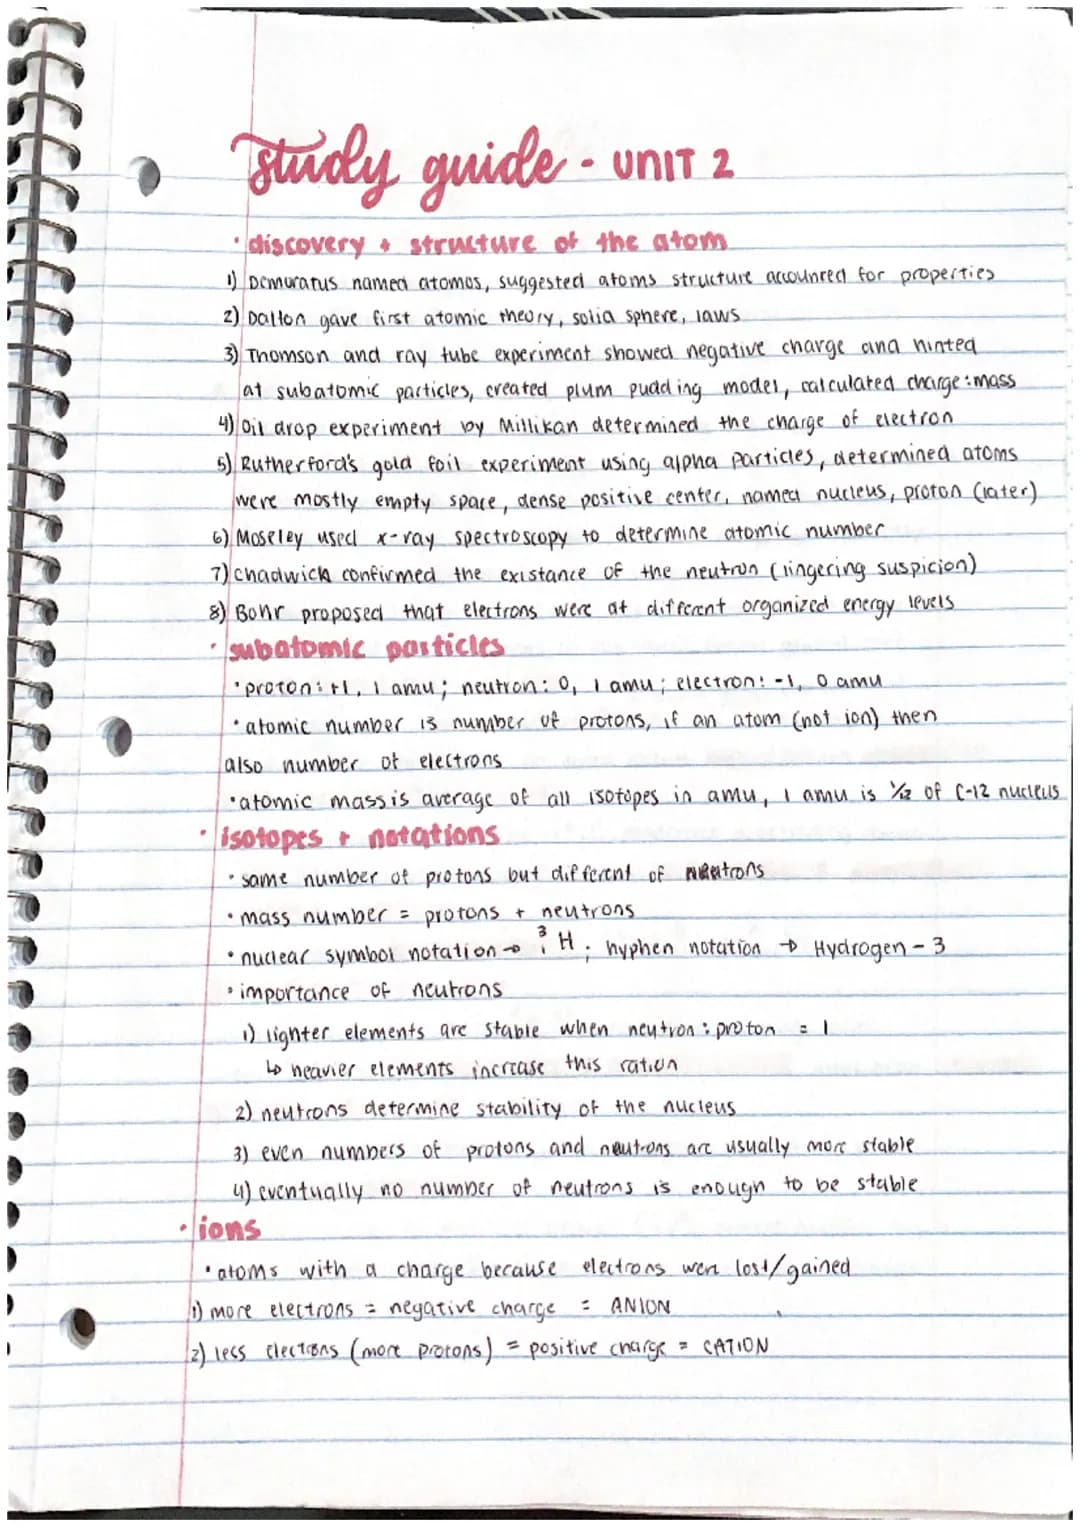 study guide - UNIT 2
· discovery + structure of the atom
1) Demoratus named atomos, suggested atoms structure accounred for properties
2) Dalton gave first atomic theory, solid sphere, laws
3) Thomson and ray tube experiment showed negative charge and hinted
at subatomic particles, created plum pudding model, calculated charge:mass
4) Oil drop experiment by Millikan determined the charge of electron
5) Rutherford's gold foil experiment using alpha particles, determined atoms
were mostly empty space, dense positive center, named nucleus, proton (later)
6) Moseley used x-ray spectroscopy to determine atomic number
7) Chadwick confirmed the existance of the neutron (lingering suspicion)
8) Bohr proposed that electrons were at different organized energy levels
· subatomic particles
· proton: +1, 1 amu; neutron: 0, 1 amu; electron: -1, 0 amu
· atomic number is number of protons, if an atom (not ion) then
also number of electrons
· atomic mass is average of all isotopes in amu, 1 amu is 1/12 of C-12 nucleus
· isotopes + notations
· same number of protons but different of neutrons
· mass number = protons + neutrons
· nuclear symbol notation → ³₁H; hyphen notation → Hydrogen - 3
· importance of neutrons
1) lighter elements are stable when neutron : proton = 1
↳ heavier elements increase this ration
2) neutrons determine stability of the nucleus
3) even numbers of protons and neutrons are usually more stable
4) eventually no number of neutrons is enough to be stable
· ions
· atoms with a charge because electrons were lost/gained
1) more electrons = negative charge = ANION
2) less electrons (more protons) = positive charge = CATION